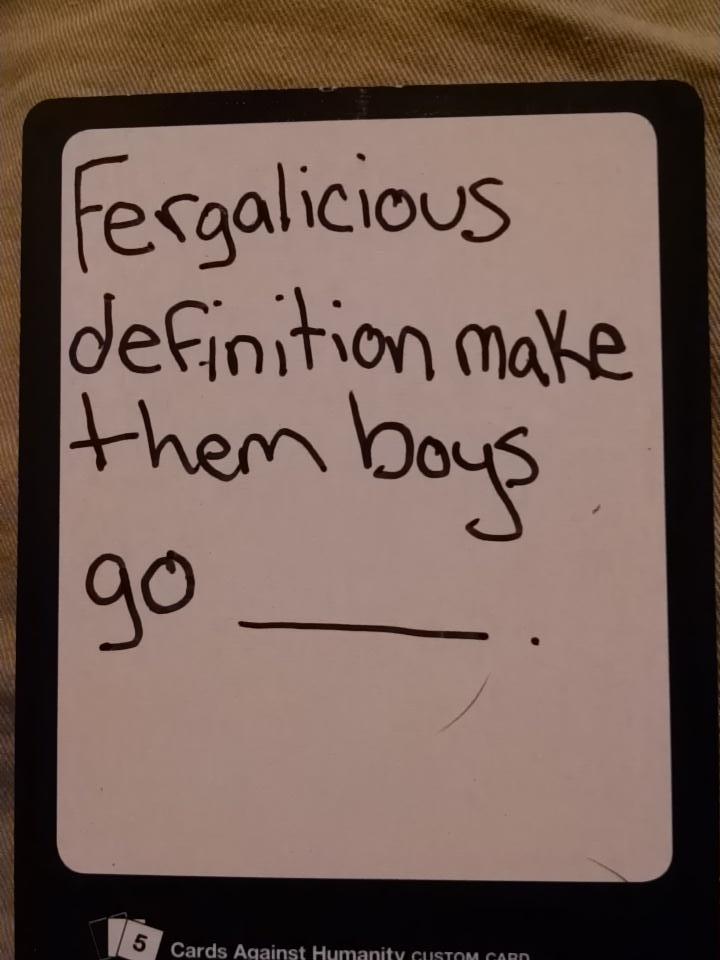 Fergalicious
definition make
them boys
go ______ .
5 Cards Against Humanity CUSTOM CARD